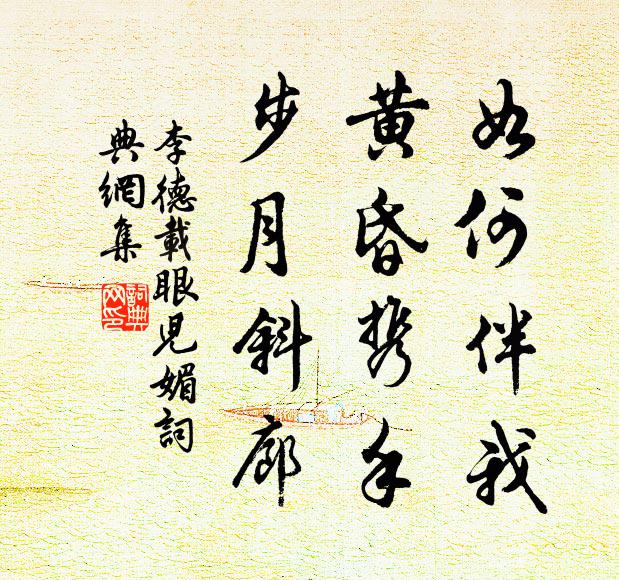 如何伴我
黃昏携手
步月斜廊
李德載眼兒媚詞
典網集
詞典網印